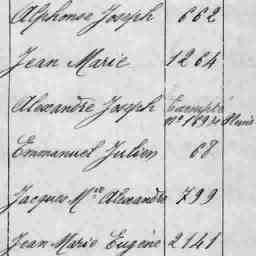 Alphonse Joseph 662
Jean Marie 1264
Alexandre Joseph Exempté
nº 189
Emmanuel Julien 68
Jacques M.ie Alexandre 799
Jean Marie Eugène 2141